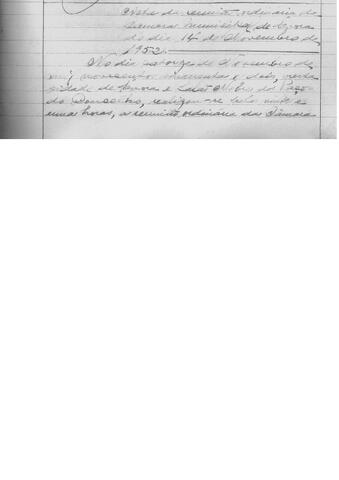 Acta da reunião ordinária da
Câmara Municipal de Évora
do dia 14 de Novembro de
1952.
No dia catorze de Novembro de
mil novecentos cincoenta e dois, nesta
cidade de Évora e Salão Nobre dos Paços
do Concelho, realizou-se pelas vinte e
uma horas, a reunião ordinária da Câmara